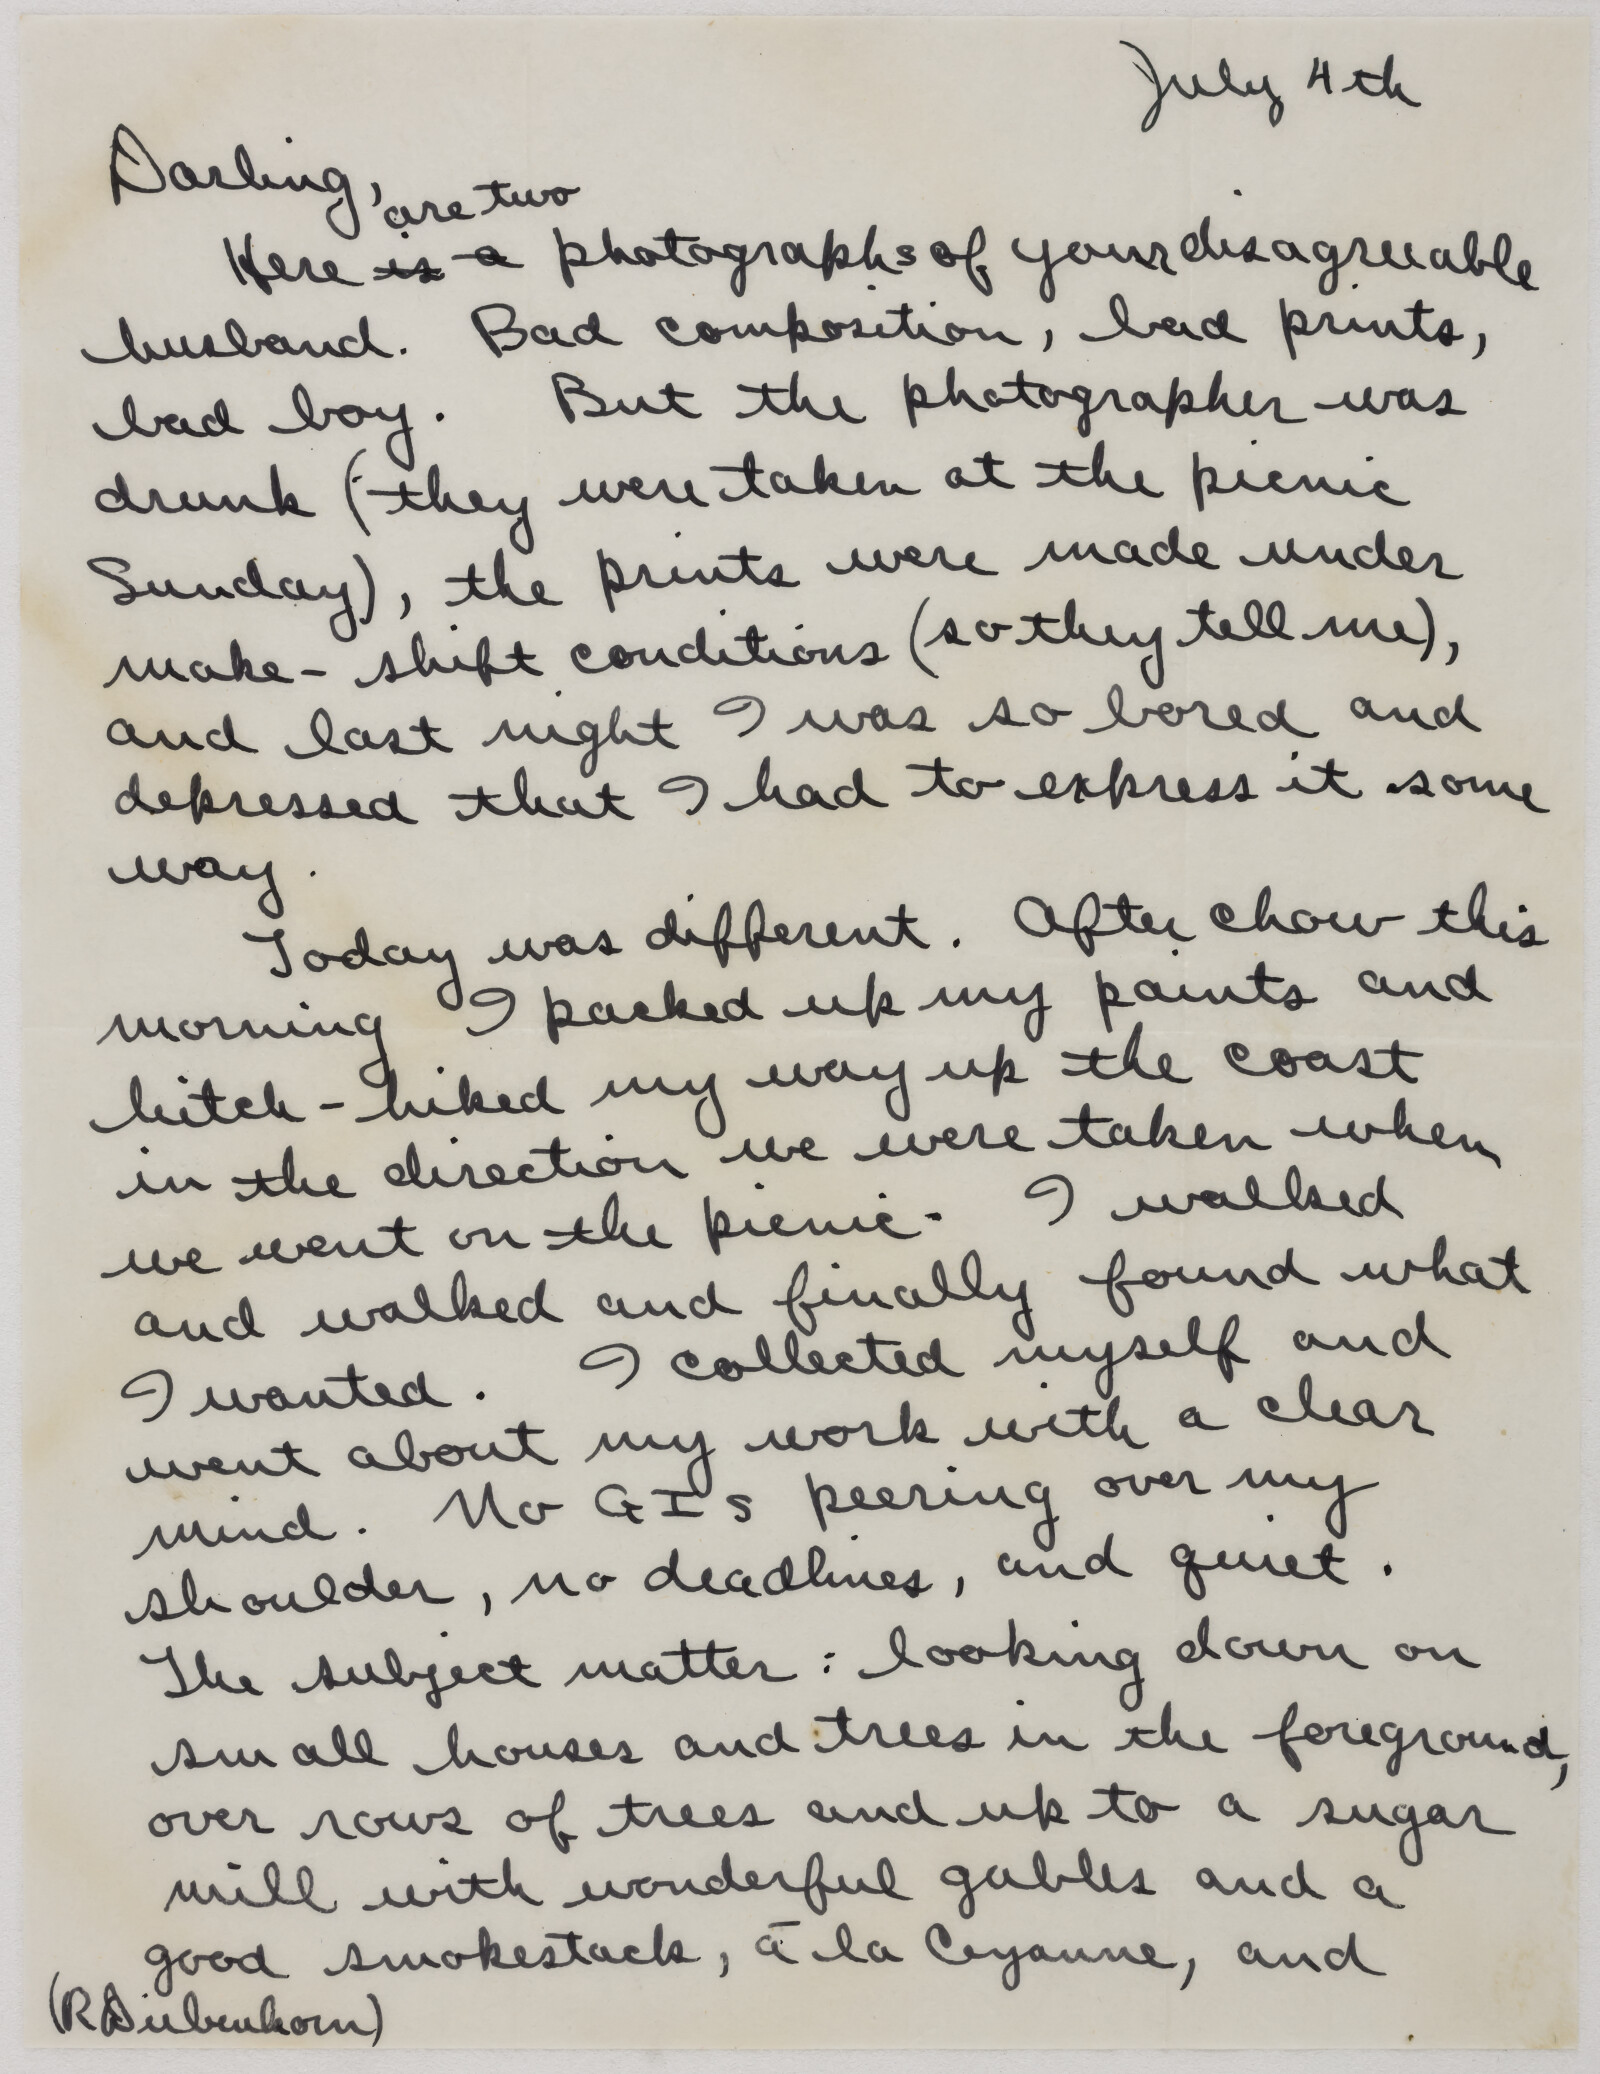 July 4th
Darling,
are two
Here is a photographs of your disagreeable
husband. Bad composition, bad prints,
bad boy. But the photographer was
drunk (they were taken at the picnic
Sunday), the prints were made under
make-shift conditions (so they tell me),
and last night I was so bored and
depressed that I had to express it some
way.
Today was different. After chow this
morning I packed up my paints and
hitch-hiked my way up the coast
in the direction we were taken when
we went on the picnic. I walked
and walked and finally found what
I wanted. I collected myself and
went about my work with a clear
mind. No GIs peering over my
shoulder, no deadlines, and quiet.
The subject matter: looking down on
small houses and trees in the foreground,
over rows of trees and up to a sugar
mill with wonderful gables and a
good smokestack, à la Cezanne, and
(R Diebenkorn)